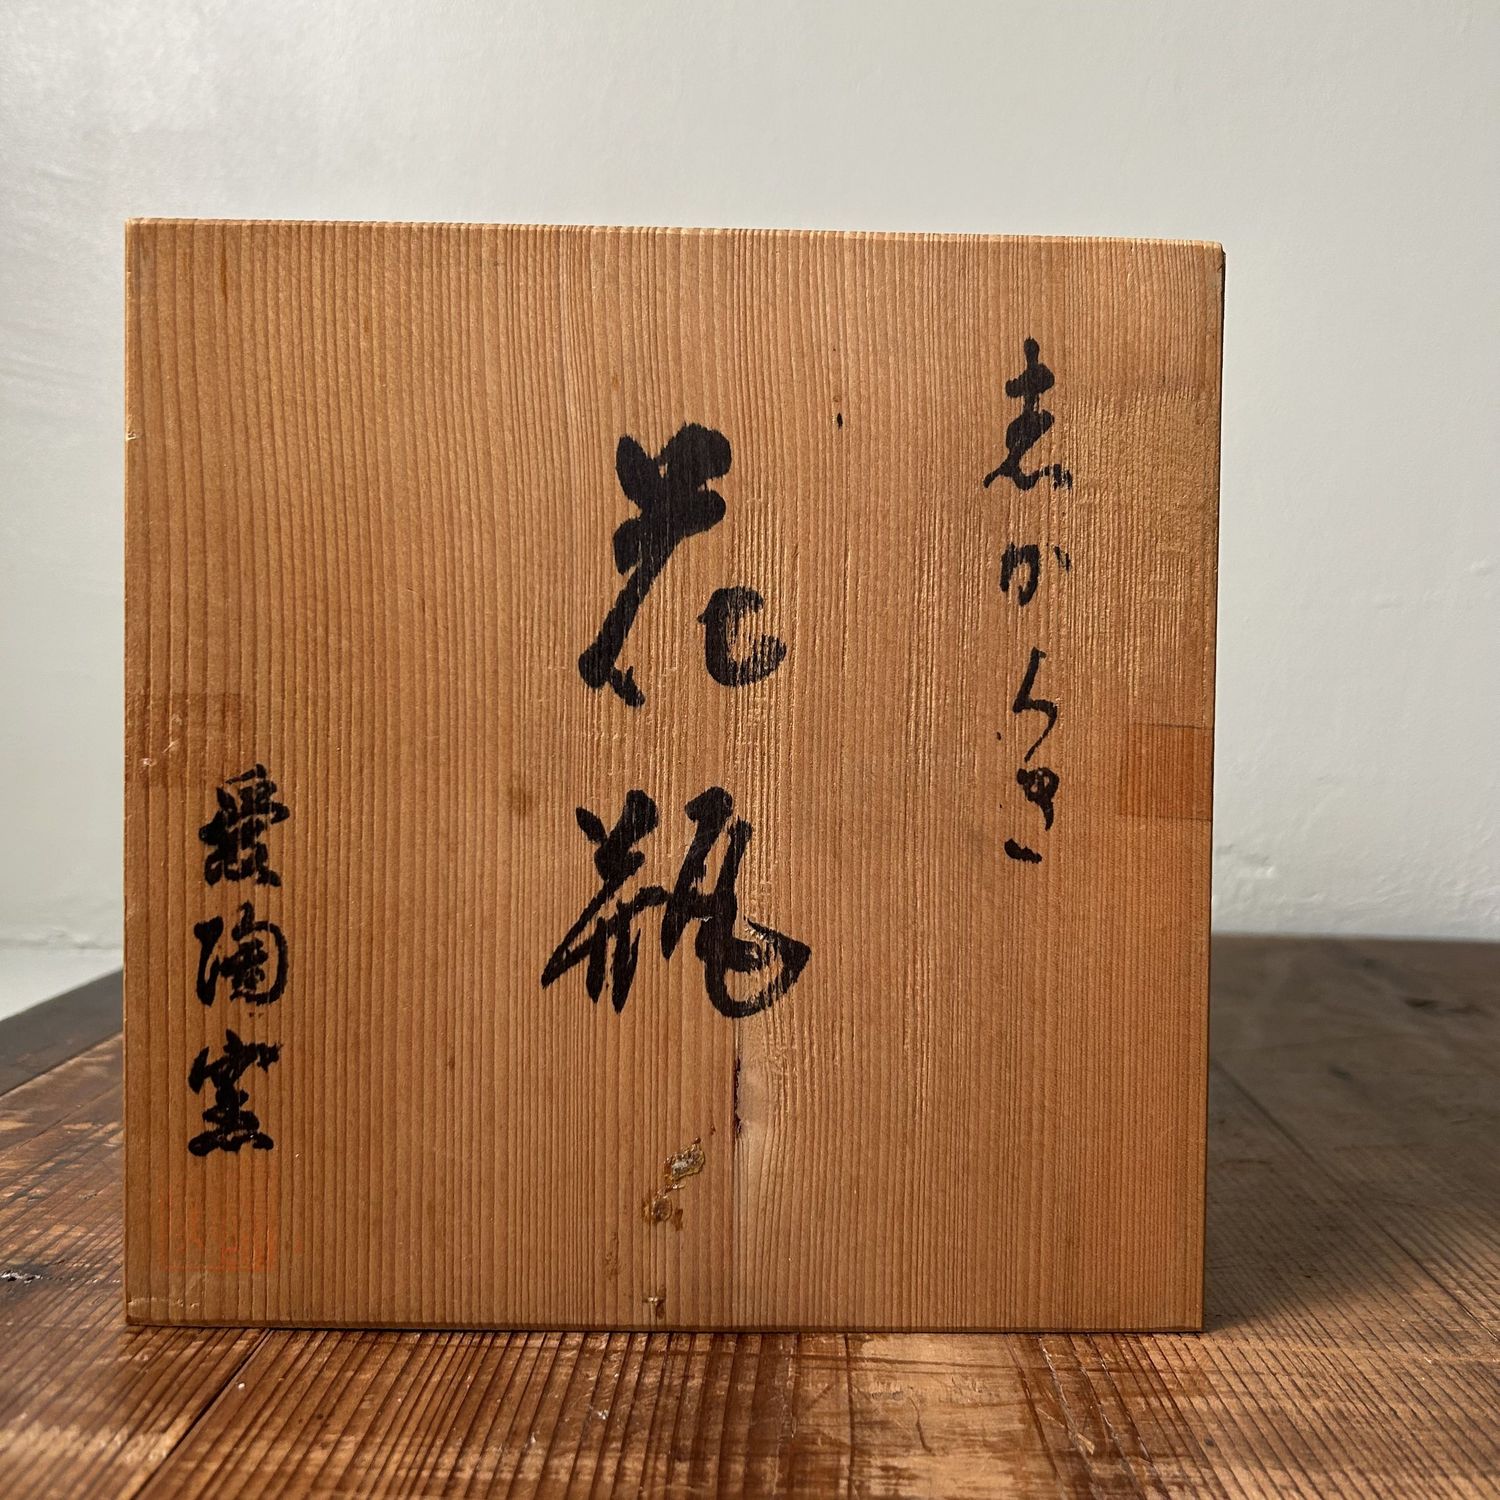 志からき
花瓶
愛陶窯